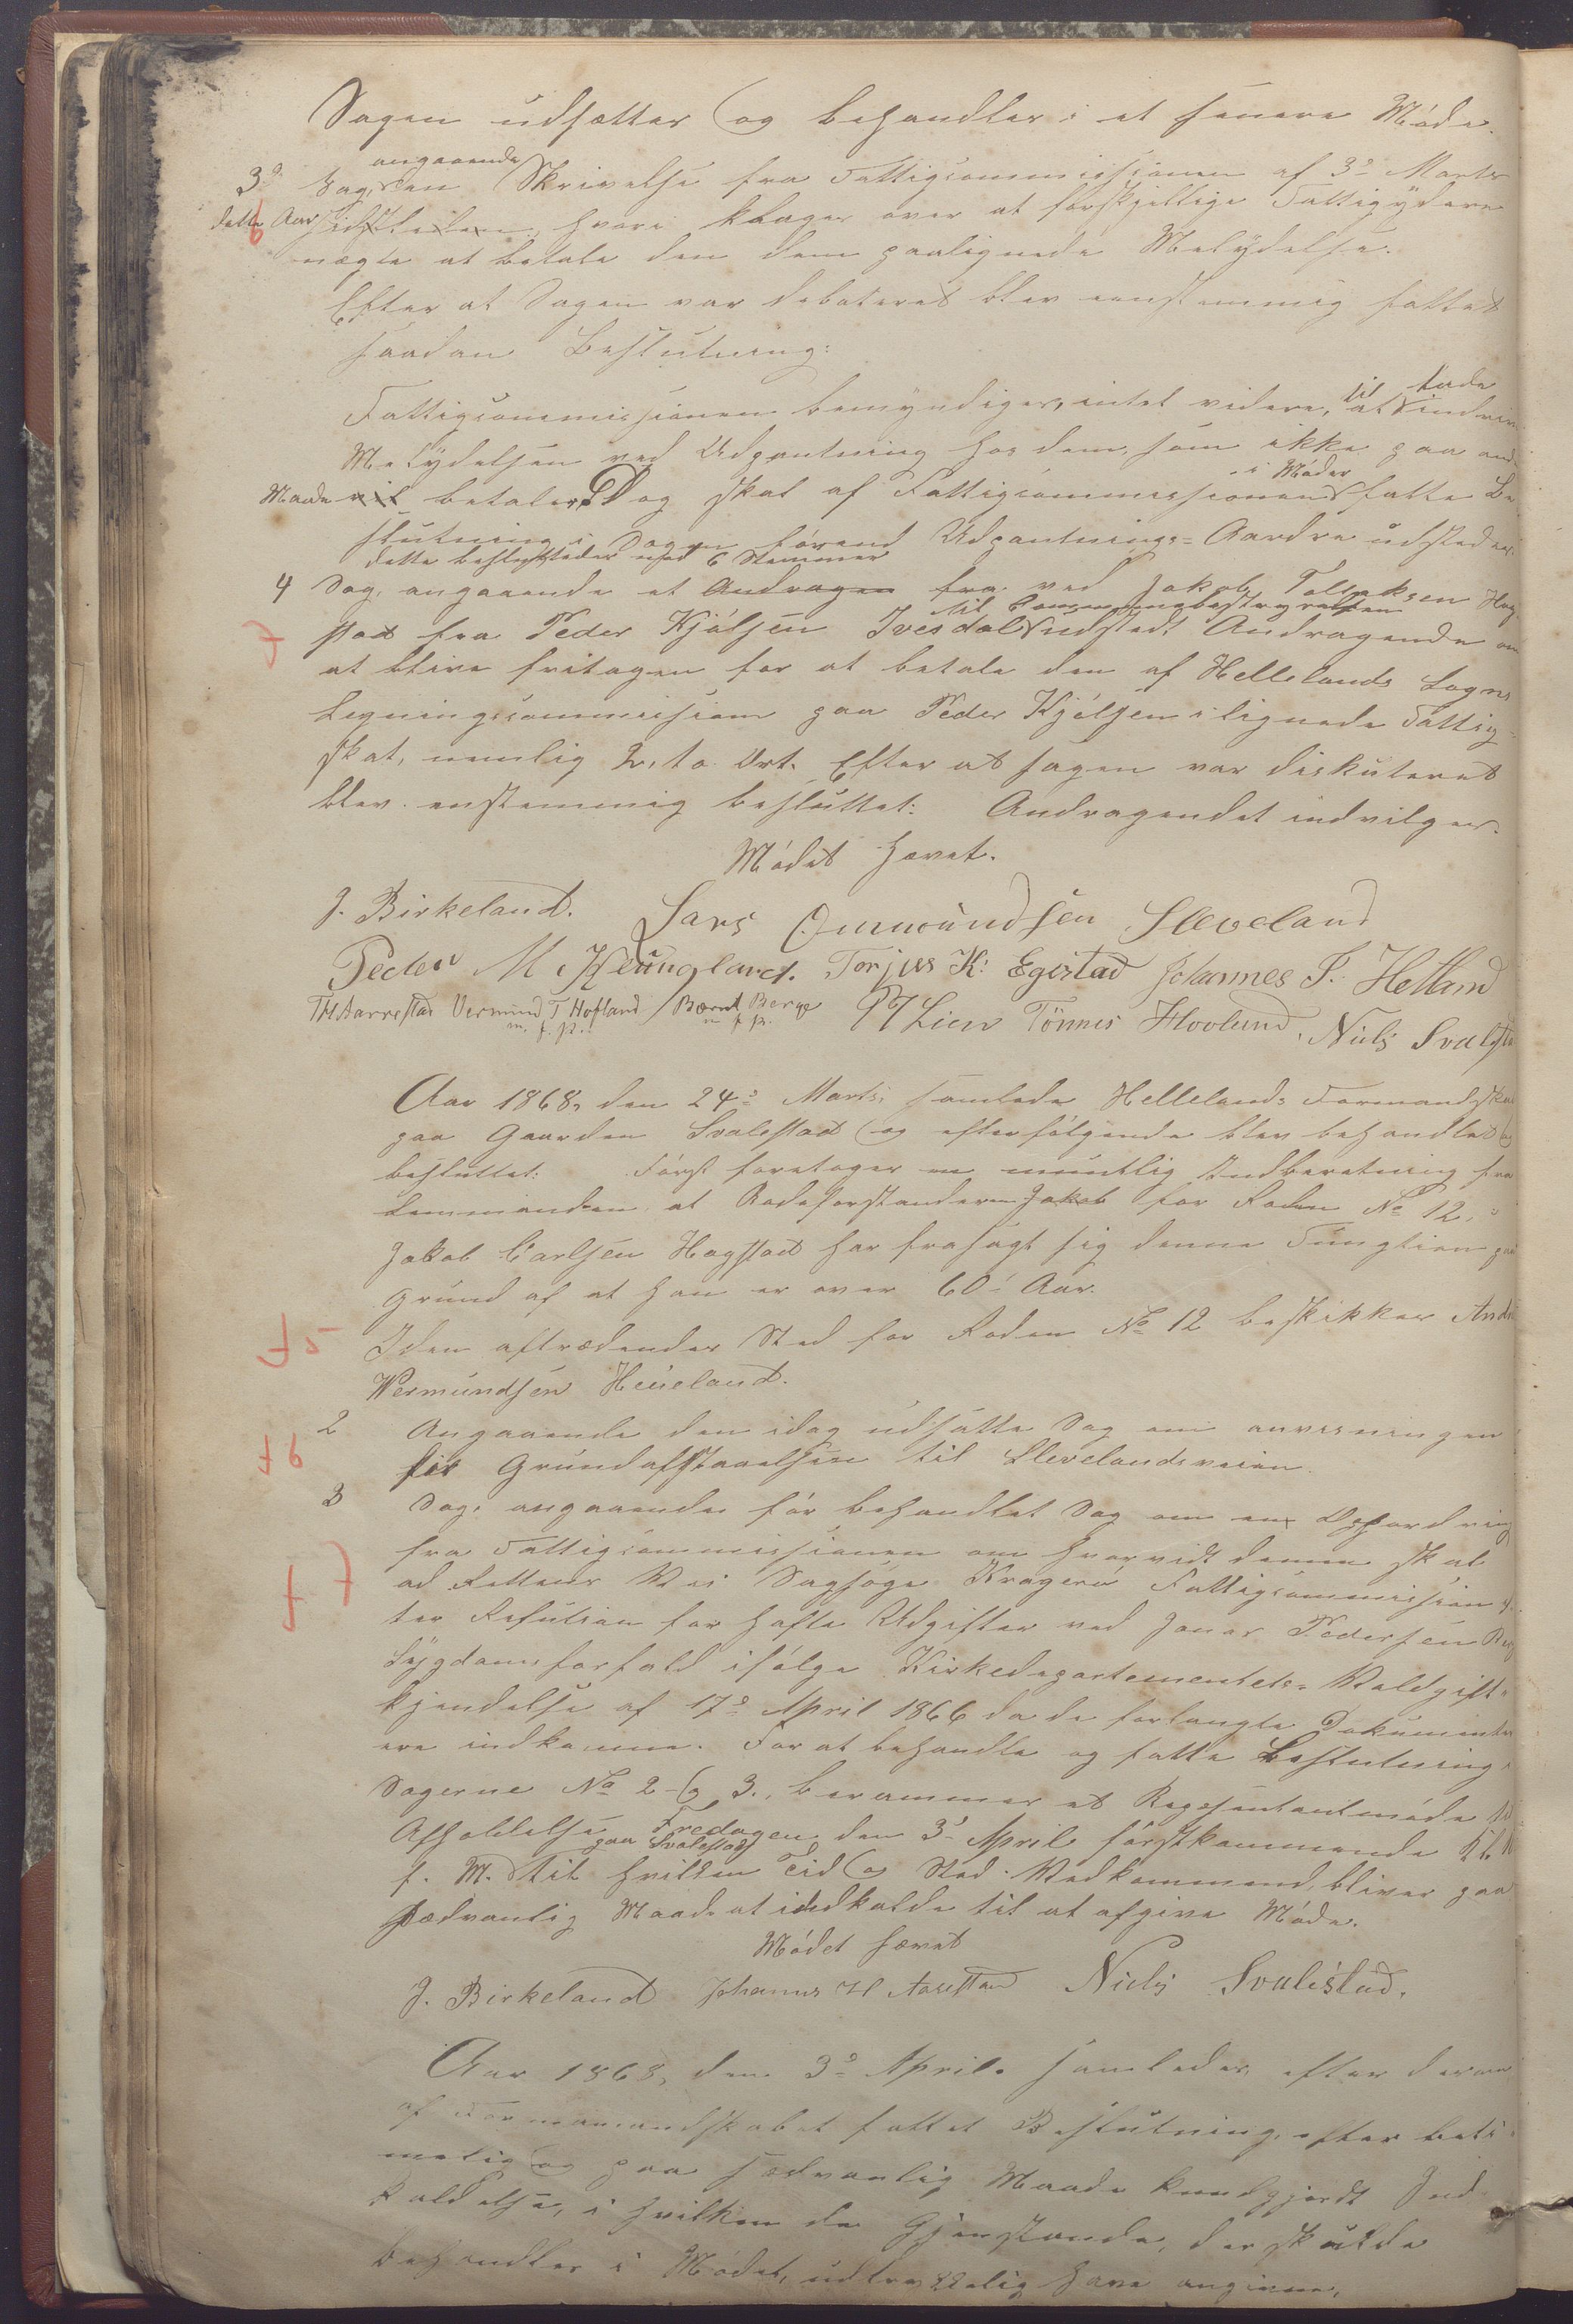 Sagen udsættes og behandles i et senere Møde.
3º Sag, angaaende en Skrivelse fra Fattigcommissionen af 3º Marts
dette Aar, hvori klages over at forskjellige Fattigydere
nægte at betale den dem paalignede Melydelse.
Efter at Sagen var debateret blev eenstemmig fattet
saadan Beslutning:
Fattigcommissionen bemyndiges, intet videre, til at lade inddrive
Melydelsen ved Udpantning hos dem, som ikke paa anden
Maade vil betale. Dog skal af Fattigcommissionen i Møder fatte Be-
slutning i Sagen førend Udpantnings-Aardre udstedes.
dette besluttedes med 6 Stemmer
4 Sag, angaaende et Andragen fra ved Jakob Tollaksen Hog-
stad fra Peder Kjølsen Ivesdal til Communebestyrelsen udstedt Andragende om
at blive fritagen for at betale den af Hellelands Sogns
Ligningscommission paa Peder Kjølsen ilignede Fattig-
skat, nemlig 2, to Ort. Efter at sagen var diskuteret
blev enstemmig besluttet: Andragendet indvilges.
Mødet hævet.
J. Birkeland. Lars Omundsen Sleveland
Peder M. Klungland. Torjus K. Egestad Johannes P. Helland
TH Aarrestad Vermund T Hofland Bærnt Berge P T Lien Tönnes Hovland, Niels Svalestad
m. f. p. m f p.
Aar 1868, den 24º Marts, samlede Hellelands Formandskab
paa Gaarden Svalestad og efterfølgende blev behandlet og
besluttet: Først foretoges en mundtlig Indberetning fra
Lensmanden, at Rodeforstanderen Jakob for Roden No 12,
Jakob Carlsen Hogstad har frasagt sig denne Fungtion paa
Grund af at han er over 60 Aar.
I den aftrædendes Sted for Roden No 12 beskikkes Andr
Wermundsen Heüeland.
2 Angaaende den idag udsatte Sag om anvisningen
for Grundafstaaelsen til Slevelandsveien.
3 Sag, angaaende før behandlet Sag om en Opfordring
fra Fattigcommissionen om hvorvidt denne skal
ad Rettens Vei Sagsøge Kragerø Fattigcommission ef-
ter Refusion for hafte Udgifter ved Jonas Pedersen
Sygdomsforfald ifølge Kirkedepartementets Voldgift-
kjendelse af 17º April 1866 da de forlangte Dokumenter
ere indkomne. For at behandle og fatte Beslutning i
Sagerne No 2 og 3, berammes et Repræsentantmøde til
Afholdelse Fredagen den 3' April førstkommende Kl. 10
f. M. paa Svalestad til hvilken Tid og Sted Vedkommend, bliver paa
sædvanlig Maade at indkalde til at afgive Møde.
Mødet hævet
J. Birkeland Johannes H Aarestad Niels Svalestad.
Aar 1868, den 3º April samledes, efter deraf
af Formandskabet fattet Beslutning, efter beti-
melig og paa sædvanlig Maade kundgjordt Ind-
kaldelse, i hvilken de Gjenstande, der skulde
behandles i Mødet, udtrykkelig have angivne,